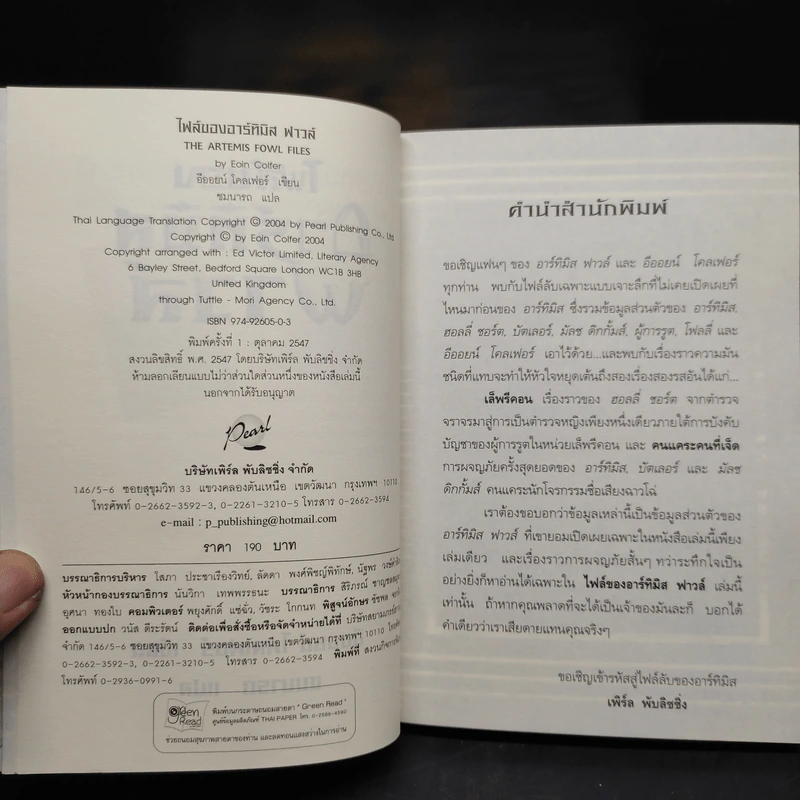 ไฟล์ของอาร์ทิมิส ฟาวล์
THE ARTEMIS FOWL FILES
by Eoin Colfer
อีออยน์ โคลเฟอร์ เขียน
ชมนารถ แปล
Thai Language Translation Copyright © 2004 by Pearl Publishing Co., Ltd
Copyright © by Eoin Colfer 2004
Copyright arranged with : Ed Victor Limited, Literary Agency
6 Bayley Street, Bedford Square London WC1B 3HB
United Kingdom
through Tuttle - Mori Agency Co., Ltd.
ISBN 974-92605-0-3
พิมพ์ครั้งที่ 1 : ตุลาคม 2547
สงวนลิขสิทธิ์ พ.ศ. 2547 โดยบริษัทเพิร์ล พับลิชชิ่ง จำกัด
ห้ามลอกเลียนแบบไม่ว่าส่วนใดส่วนหนึ่งของหนังสือเล่มนี้
นอกจากได้รับอนุญาต
Pearl
บริษัทเพิร์ล พับลิชชิ่ง จำกัด
146/5-6 ซอยสุขุมวิท 33 แขวงคลองตันเหนือ เขตวัฒนา กรุงเทพฯ 10110
โทรศัพท์ 0-2662-3592-3, 0-2261-3210-5 โทรสาร 0-2662-3594
e-mail : p_publishing@hotmail.com
ราคา 190 บาท
บรรณาธิการบริหาร โสภา ประชาเรืองวิทย์, ลัดดา พงศ์พิชญ์พิทักษ์, นัฐพร
หัวหน้ากองบรรณาธิการ นันวิกา เทพพรธนะ บรรณาธิการ สิริภรณ์
อุศนา ทองใบ คอมพิวเตอร์ พยุงศักดิ์ แซ่ฉั่ว, วัชระ โกกนท พิสูจน์อักษร
ออกแบบปก วนัส ดีระรัตน์ ติดต่อเพื่อสั่งซื้อหรือจัดจำหน่ายได้ที่
จำกัด 146/5-6 ซอยสุขุมวิท 33 แขวงคลองตันเหนือ เขตวัฒนา กรุงเทพฯ 10110
0-2662-3592-3, 0-2261-3210-5 โทรสาร 0-2662-3594 พิมพ์ที่
โทรศัพท์ 0-2936-0991-6
green Read
พิมพ์บนกระดาษถนอมสายตา "Green Read"
ศูนย์ข้อมูลผลิตภัณฑ์ THAI PAPER โทร. 0-2586-4592
ช่วยถนอมสุขภาพสายตาของท่าน และลดทอนแสงสว่างในการอ่าน
คำนำสำนักพิมพ์
ขอเชิญแฟนๆ ของ อาร์ทิมิส ฟาวล์ และ อีออยน์ โคลเฟอร์
ทุกท่าน พบกับไฟล์ลับเฉพาะแบบเจาะลึกที่ไม่เคยเปิดเผยที่
ไหนมาก่อนของ อาร์ทิมิส ซึ่งรวมข้อมูลส่วนตัวของ อาร์ทิมิส,
ฮอลลี่ ชอร์ต, บัตเลอร์, มัลช ดิกกั้มส์, ผู้การรูต, โฟลลี่ และ
อีออยน์ โคลเฟอร์ เอาไว้ด้วย...และพบกับเรื่องราวความมัน
ชนิดที่แทบจะทำให้หัวใจหยุดเต้นถึงสองเรื่องสองรสอันได้แก่...
เล็พรีคอน เรื่องราวของ ฮอลลี่ ชอร์ต จากตำรวจ
จราจรมาสู่การเป็นตำรวจหญิงเพียงหนึ่งเดียวภายใต้การบังคับ
บัญชาของผู้การรูตในหน่วยเล็พรีคอน และ คนแคระคนที่เจ็ด
การผจญภัยครั้งสุดยอดของ อาร์ทิมิส, บัตเลอร์ และ มัลช
ดิกกั้มส์ คนแคระนักโจรกรรมชื่อเสียงฉาวโฉ่
เราต้องขอบอกว่าข้อมูลเหล่านี้เป็นข้อมูลส่วนตัวของ
อาร์ทิมิส ฟาวล์ ที่เขายอมเปิดเผยเฉพาะในหนังสือเล่มนี้เพียง
เล่มเดียว และเรื่องราวการผจญภัยสั้นๆ ทว่าระทึกใจเป็น
อย่างยิ่งก็หาอ่านได้เฉพาะใน ไฟล์ของอาร์ทิมิส ฟาวล์ เล่มนี้
เท่านั้น ถ้าหากคุณพลาดที่จะได้เป็นเจ้าของมันละก็ บอกได้
คำเดียวว่าเราเสียดายแทนคุณจริงๆ
ขอเชิญเข้ารหัสสู่ไฟล์ลับของอาร์ทิมิส
เพิร์ล พับลิชชิ่ง